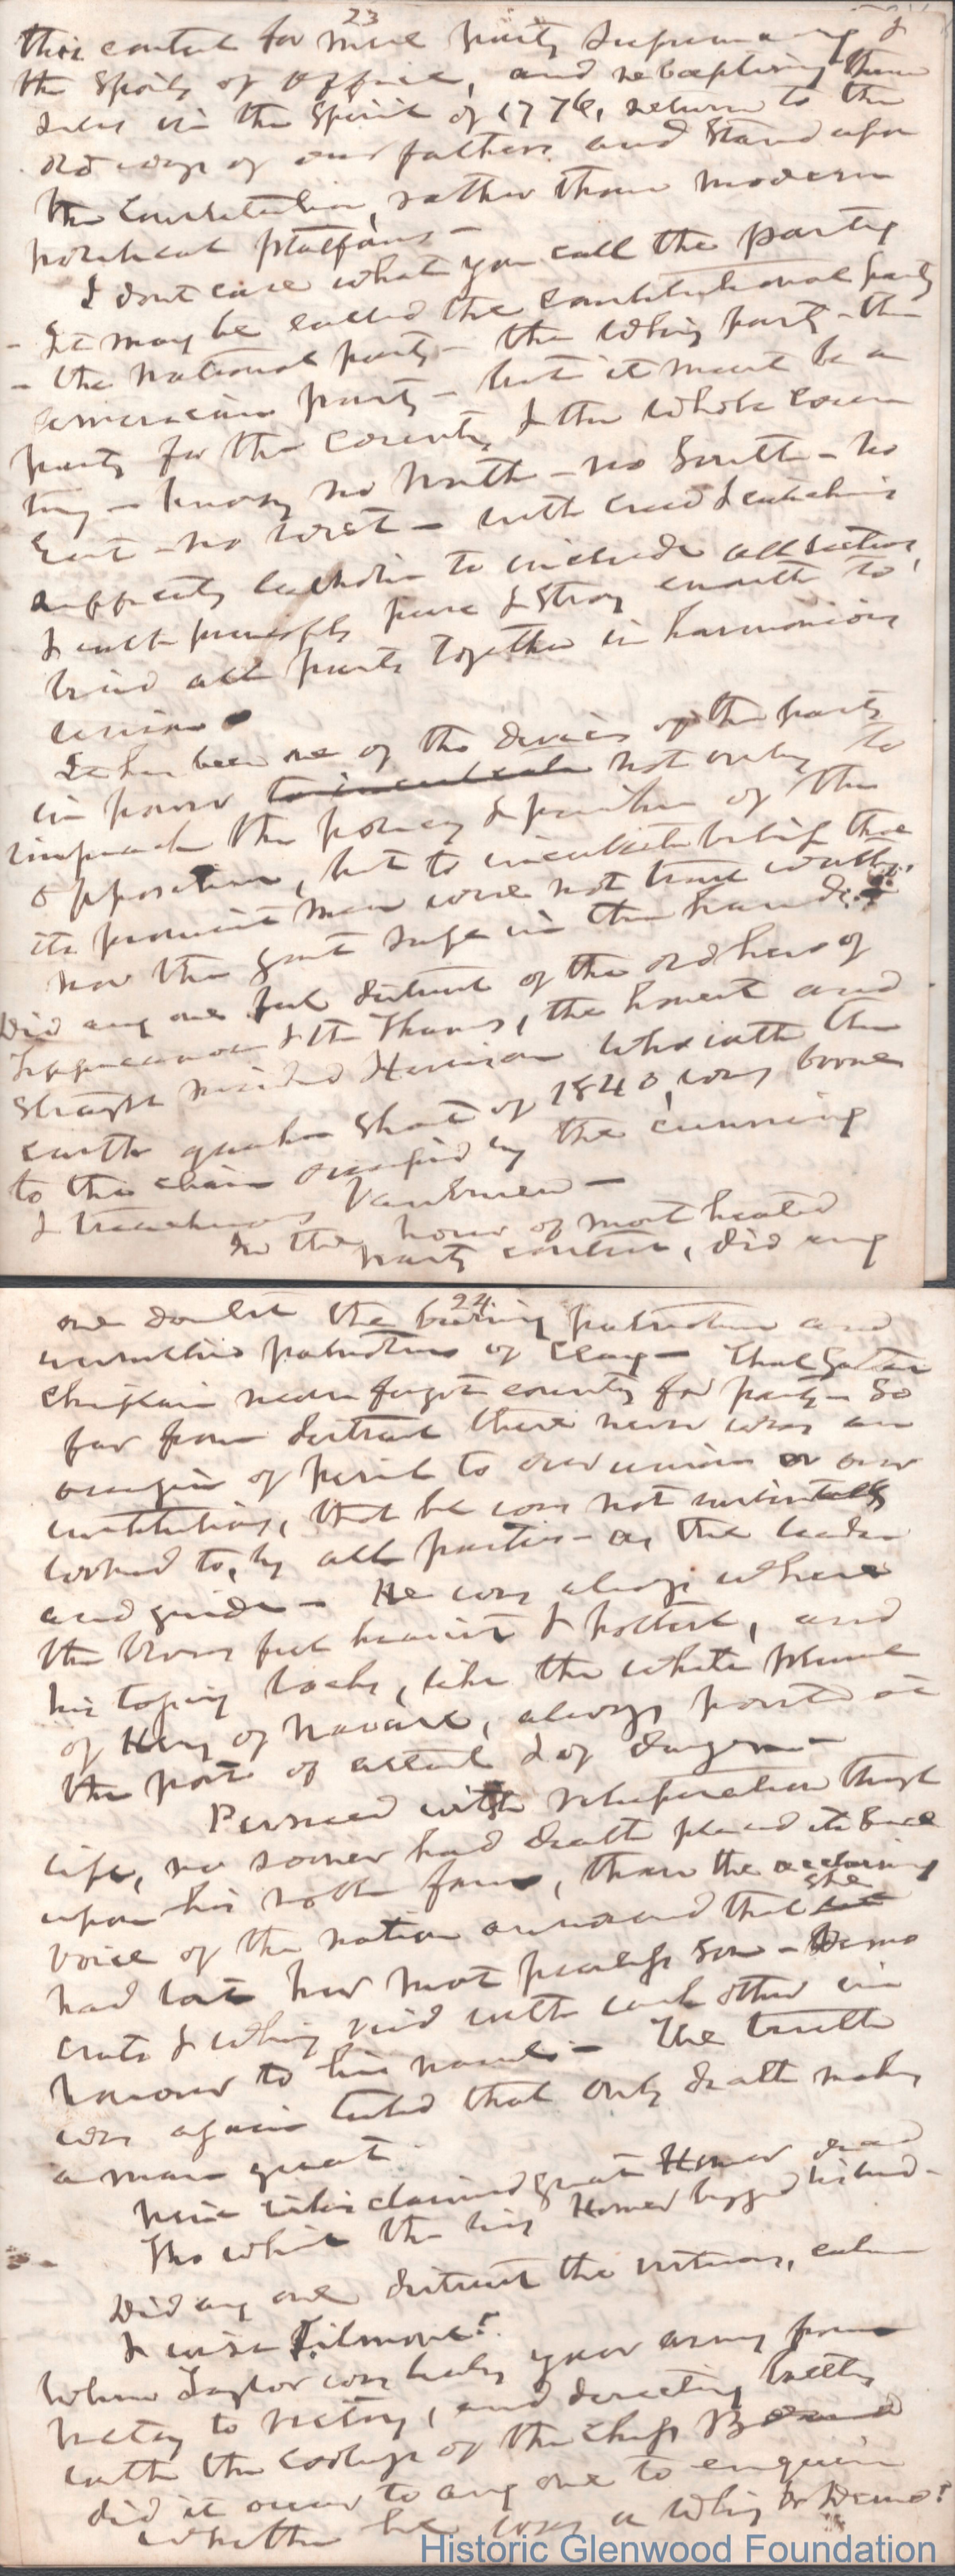 23
this contest for mere party supremacy &
the spoils of office, and rebaptising them
selves in the spirit of 1776, return to the
old ways of our fathers and stand upon
the Constitution, rather than modern
political platforms -
I dont care what you call the party
- It may be called the constitutional party
- the National party - the whig party - the
American party - but it must be a
party for the country & the whole coun
try - knowing no North - no South - no
East - no West - with creed &
catholic to include all sections,
& with principles pure & strong enough to
bind all parts together in harmonious
union
It has been one of the devices of the party
in power to inculcate not only to
impeach the policy & position of the
opposition, but to inculcate belief that
its prominent men were not trust worthy.
nor the govt safe in their hands.
Did any one feel distrust of the old hero of
Tippecanoe & the Thames, the honest and
straight minded Harrison who with the
earth quake shout of 1840, was borne
to the chair occupied by the cunning
& treacherous VanBuren -
In the hour of most heated
party contest, did any
24
one doubt the burning patriotism and
patriotism of Clay - That gallant
chieftain never forgot country for party - So
far from distrust there never was an
occasion of peril to our union or our
institutions, that he was not instinctively
looked to, by all parties - as the leader
and guide - He was always where
the blows fell heaviest & hottest, and
his locks, like the white plume
of King of Navare, always at
the post of attack & of danger -
Pursued with vituperation through
life, no sooner had death placed its seal
upon his noble form, than the
voice of the nation announced that she
had lost her most peerless son - Demo
crats & whigs vied with each other in
honour to his name - The truth
was again tested that only death makes
a man great
Nine cities claimed great Homer dead
Thro which the living Homer begged his bread -
Did any one distrust the virtuous, calm
& wise Filmore?
When Taylor was leading your army from
victory to victory, and directing battles
with the coolness of the chess Board
did it occur to any one to enquire
whether he was a Whig or Demo?
Historic Glenwood Foundation